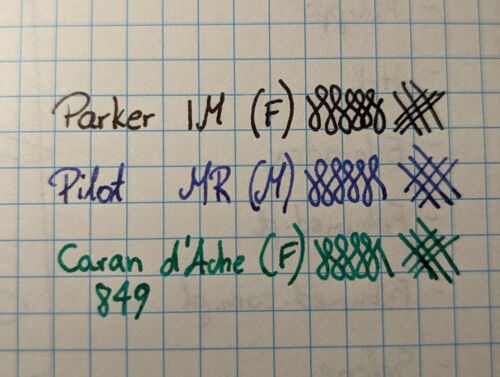 Parker IM (F)
Pilot MR (M)
Caran d'Ache (F)
849